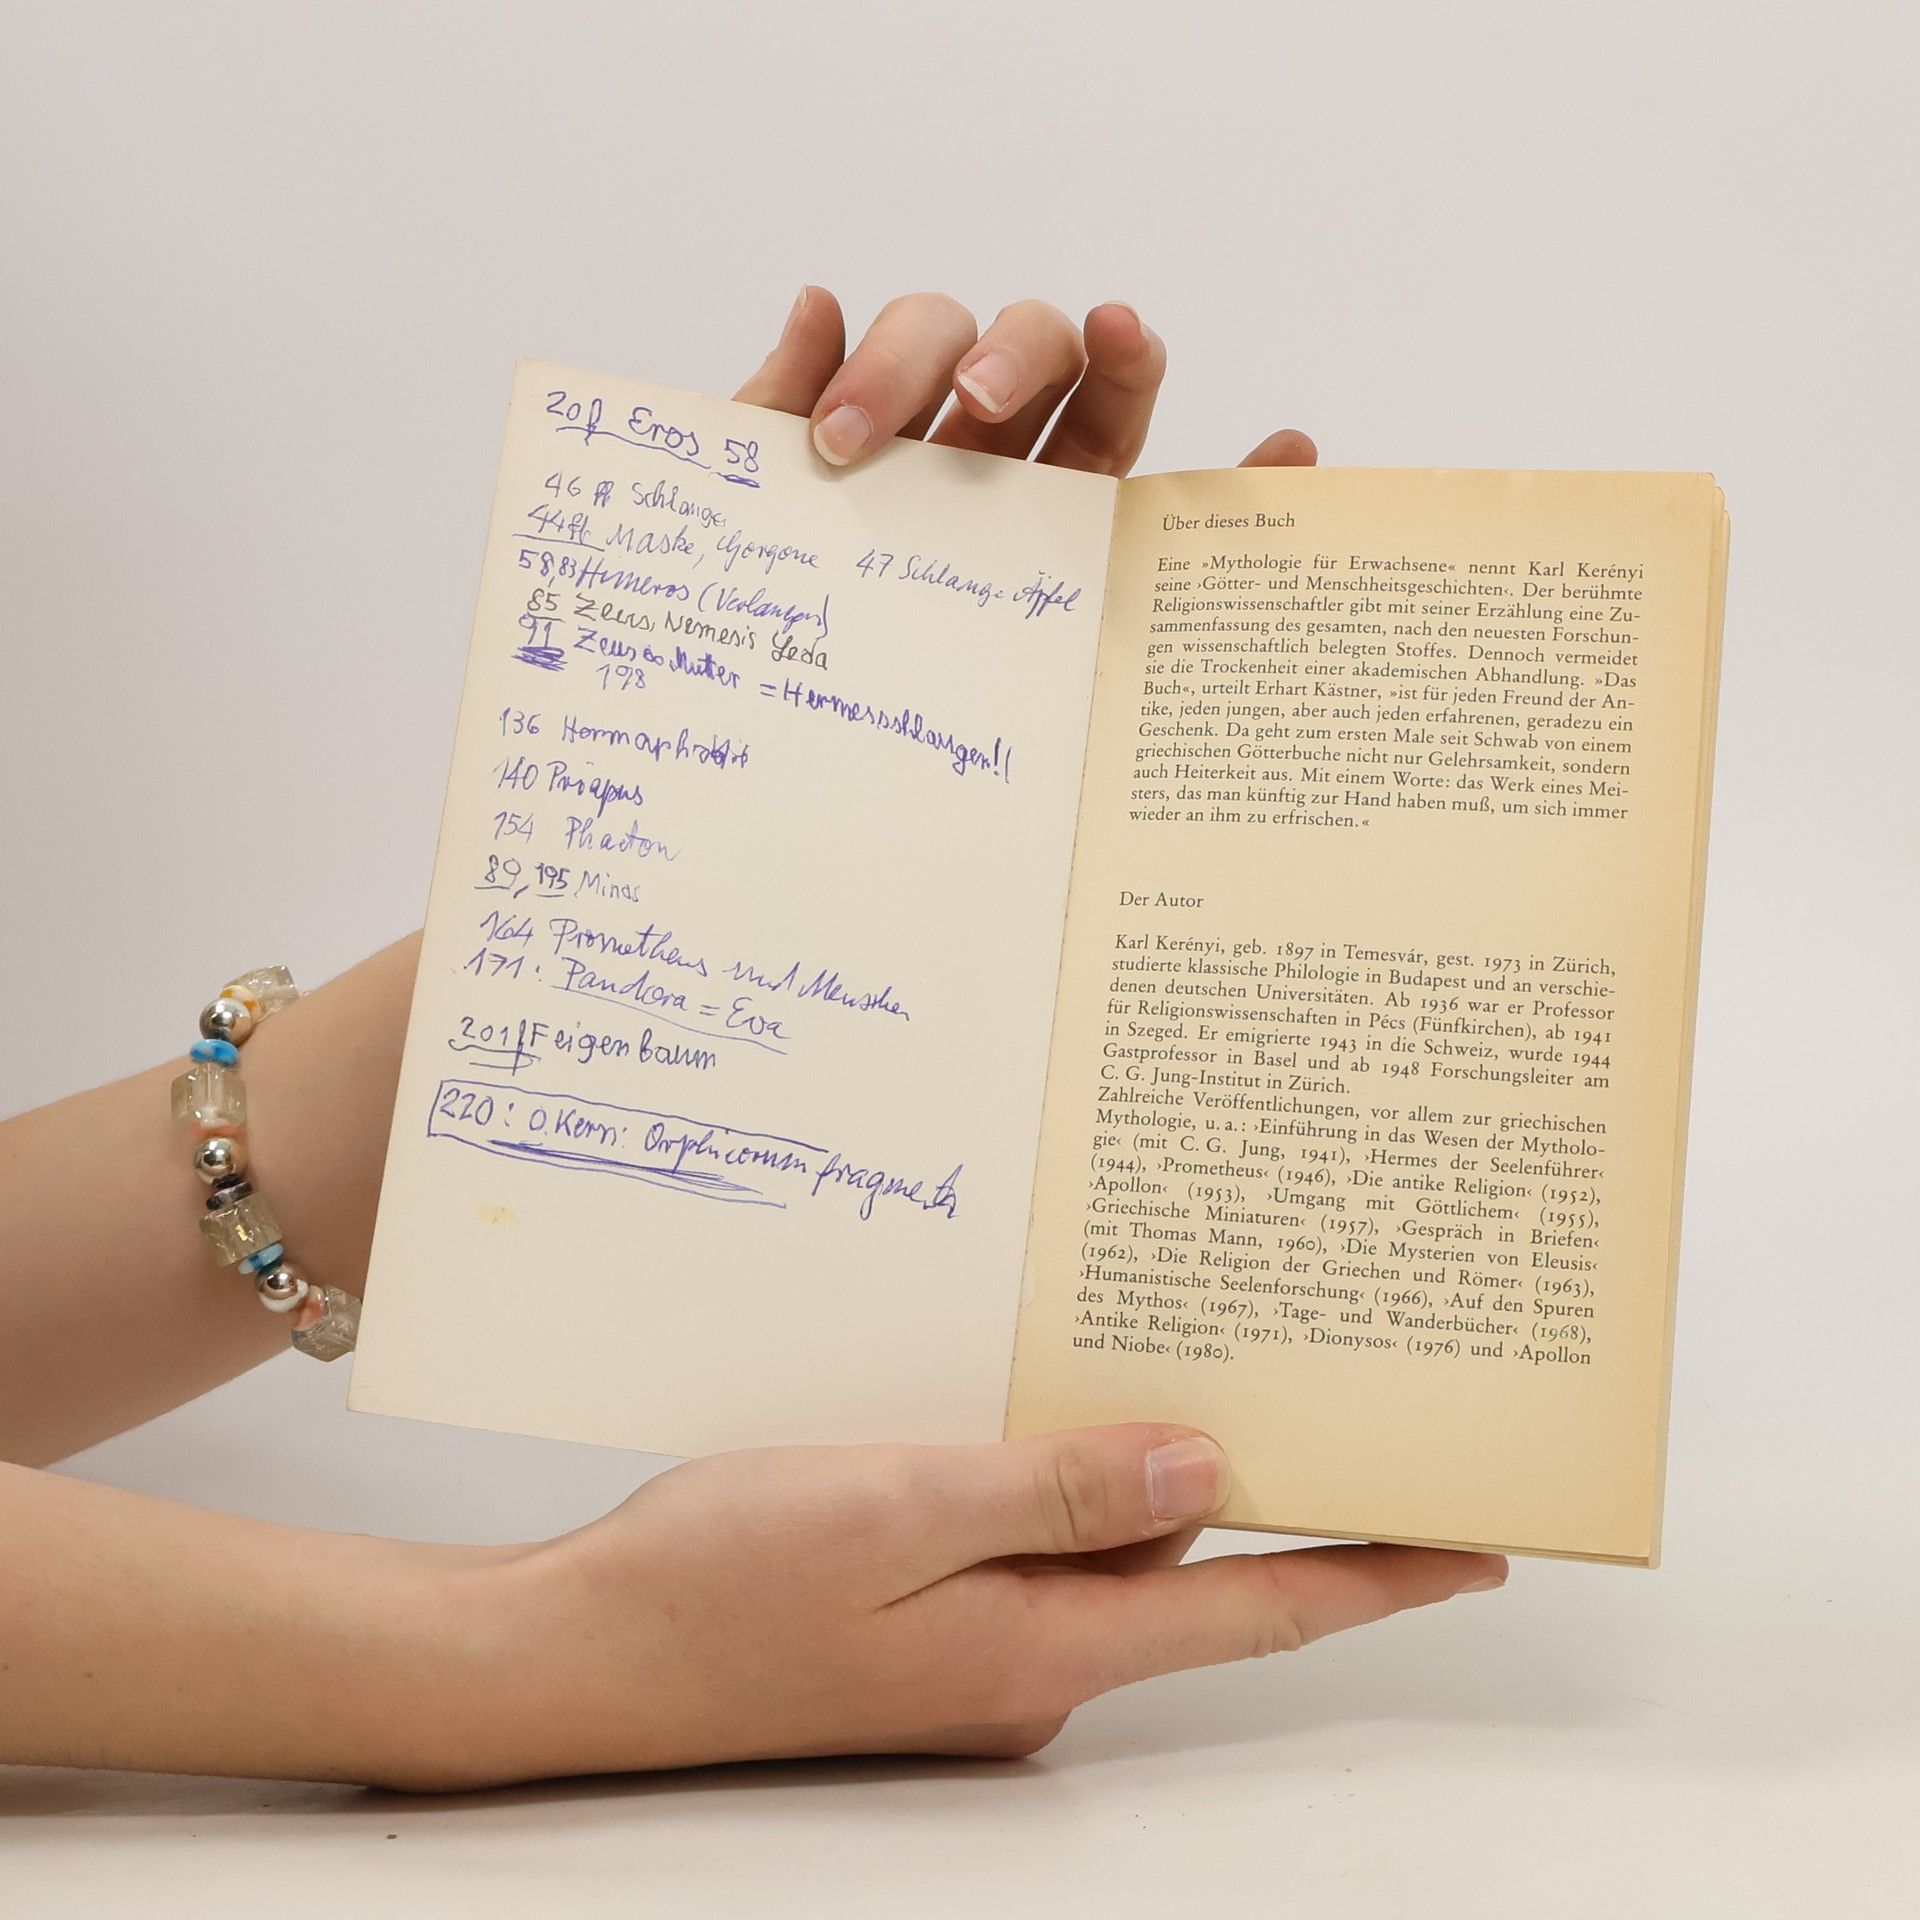 20f Eros 58
46 ff Schlange
44ff Maske, Gorgone 47 Schlange Äpfel
58,83 Himeros (Verlangen)
85 Zeus, Nemesis Leda
91 Zeus Mutter = Hermesschlangen!!
198
136 Hermaphrodit
140 Priapus
154 Phaeton
89, 195 Minos
164 Prometheus und Menschen
171: Pandora = Eva
201f Feigenbaum
220: O. Kern: Orphicorum fragmenta
Über dieses Buch
Eine »Mythologie für Erwachsene« nennt Karl Kerényi
seine ›Götter- und Menschheitsgeschichten‹. Der berühmte
Religionswissenschaftler gibt mit seiner Erzählung eine Zu-
sammenfassung des gesamten, nach den neuesten Forschun-
gen wissenschaftlich belegten Stoffes. Dennoch vermeidet
sie die Trockenheit einer akademischen Abhandlung. »Das
Buch«, urteilt Erhart Kästner, »ist für jeden Freund der An-
tike, jeden jungen, aber auch jeden erfahrenen, geradezu ein
Geschenk. Da geht zum ersten Male seit Schwab von einem
griechischen Götterbuche nicht nur Gelehrsamkeit, sondern
auch Heiterkeit aus. Mit einem Worte: das Werk eines Mei-
sters, das man künftig zur Hand haben muß, um sich immer
wieder an ihm zu erfrischen.«
Der Autor
Karl Kerényi, geb. 1897 in Temesvár, gest. 1973 in Zürich,
studierte klassische Philologie in Budapest und an verschie-
denen deutschen Universitäten. Ab 1936 war er Professor
für Religionswissenschaften in Pécs (Fünfkirchen), ab 1941
in Szeged. Er emigrierte 1943 in die Schweiz, wurde 1944
Gastprofessor in Basel und ab 1948 Forschungsleiter am
C. G. Jung-Institut in Zürich.
Zahlreiche Veröffentlichungen, vor allem zur griechischen
Mythologie, u. a.: ›Einführung in das Wesen der Mytholo-
gie‹ (mit C. G. Jung, 1941), ›Hermes der Seelenführer‹
(1944), ›Prometheus‹ (1946), ›Die antike Religion‹ (1952),
›Apollon‹ (1953), ›Umgang mit Göttlichem‹ (1955),
›Griechische Miniaturen‹ (1957), ›Gespräch in Briefen‹
(mit Thomas Mann, 1960), ›Die Mysterien von Eleusis‹
(1962), ›Die Religion der Griechen und Römer‹ (1963),
›Humanistische Seelenforschung‹ (1966), ›Auf den Spuren
des Mythos‹ (1967), ›Tage- und Wanderbücher‹ (1968),
›Antike Religion‹ (1971), ›Dionysos‹ (1976) und ›Apollon
und Niobe‹ (1980).